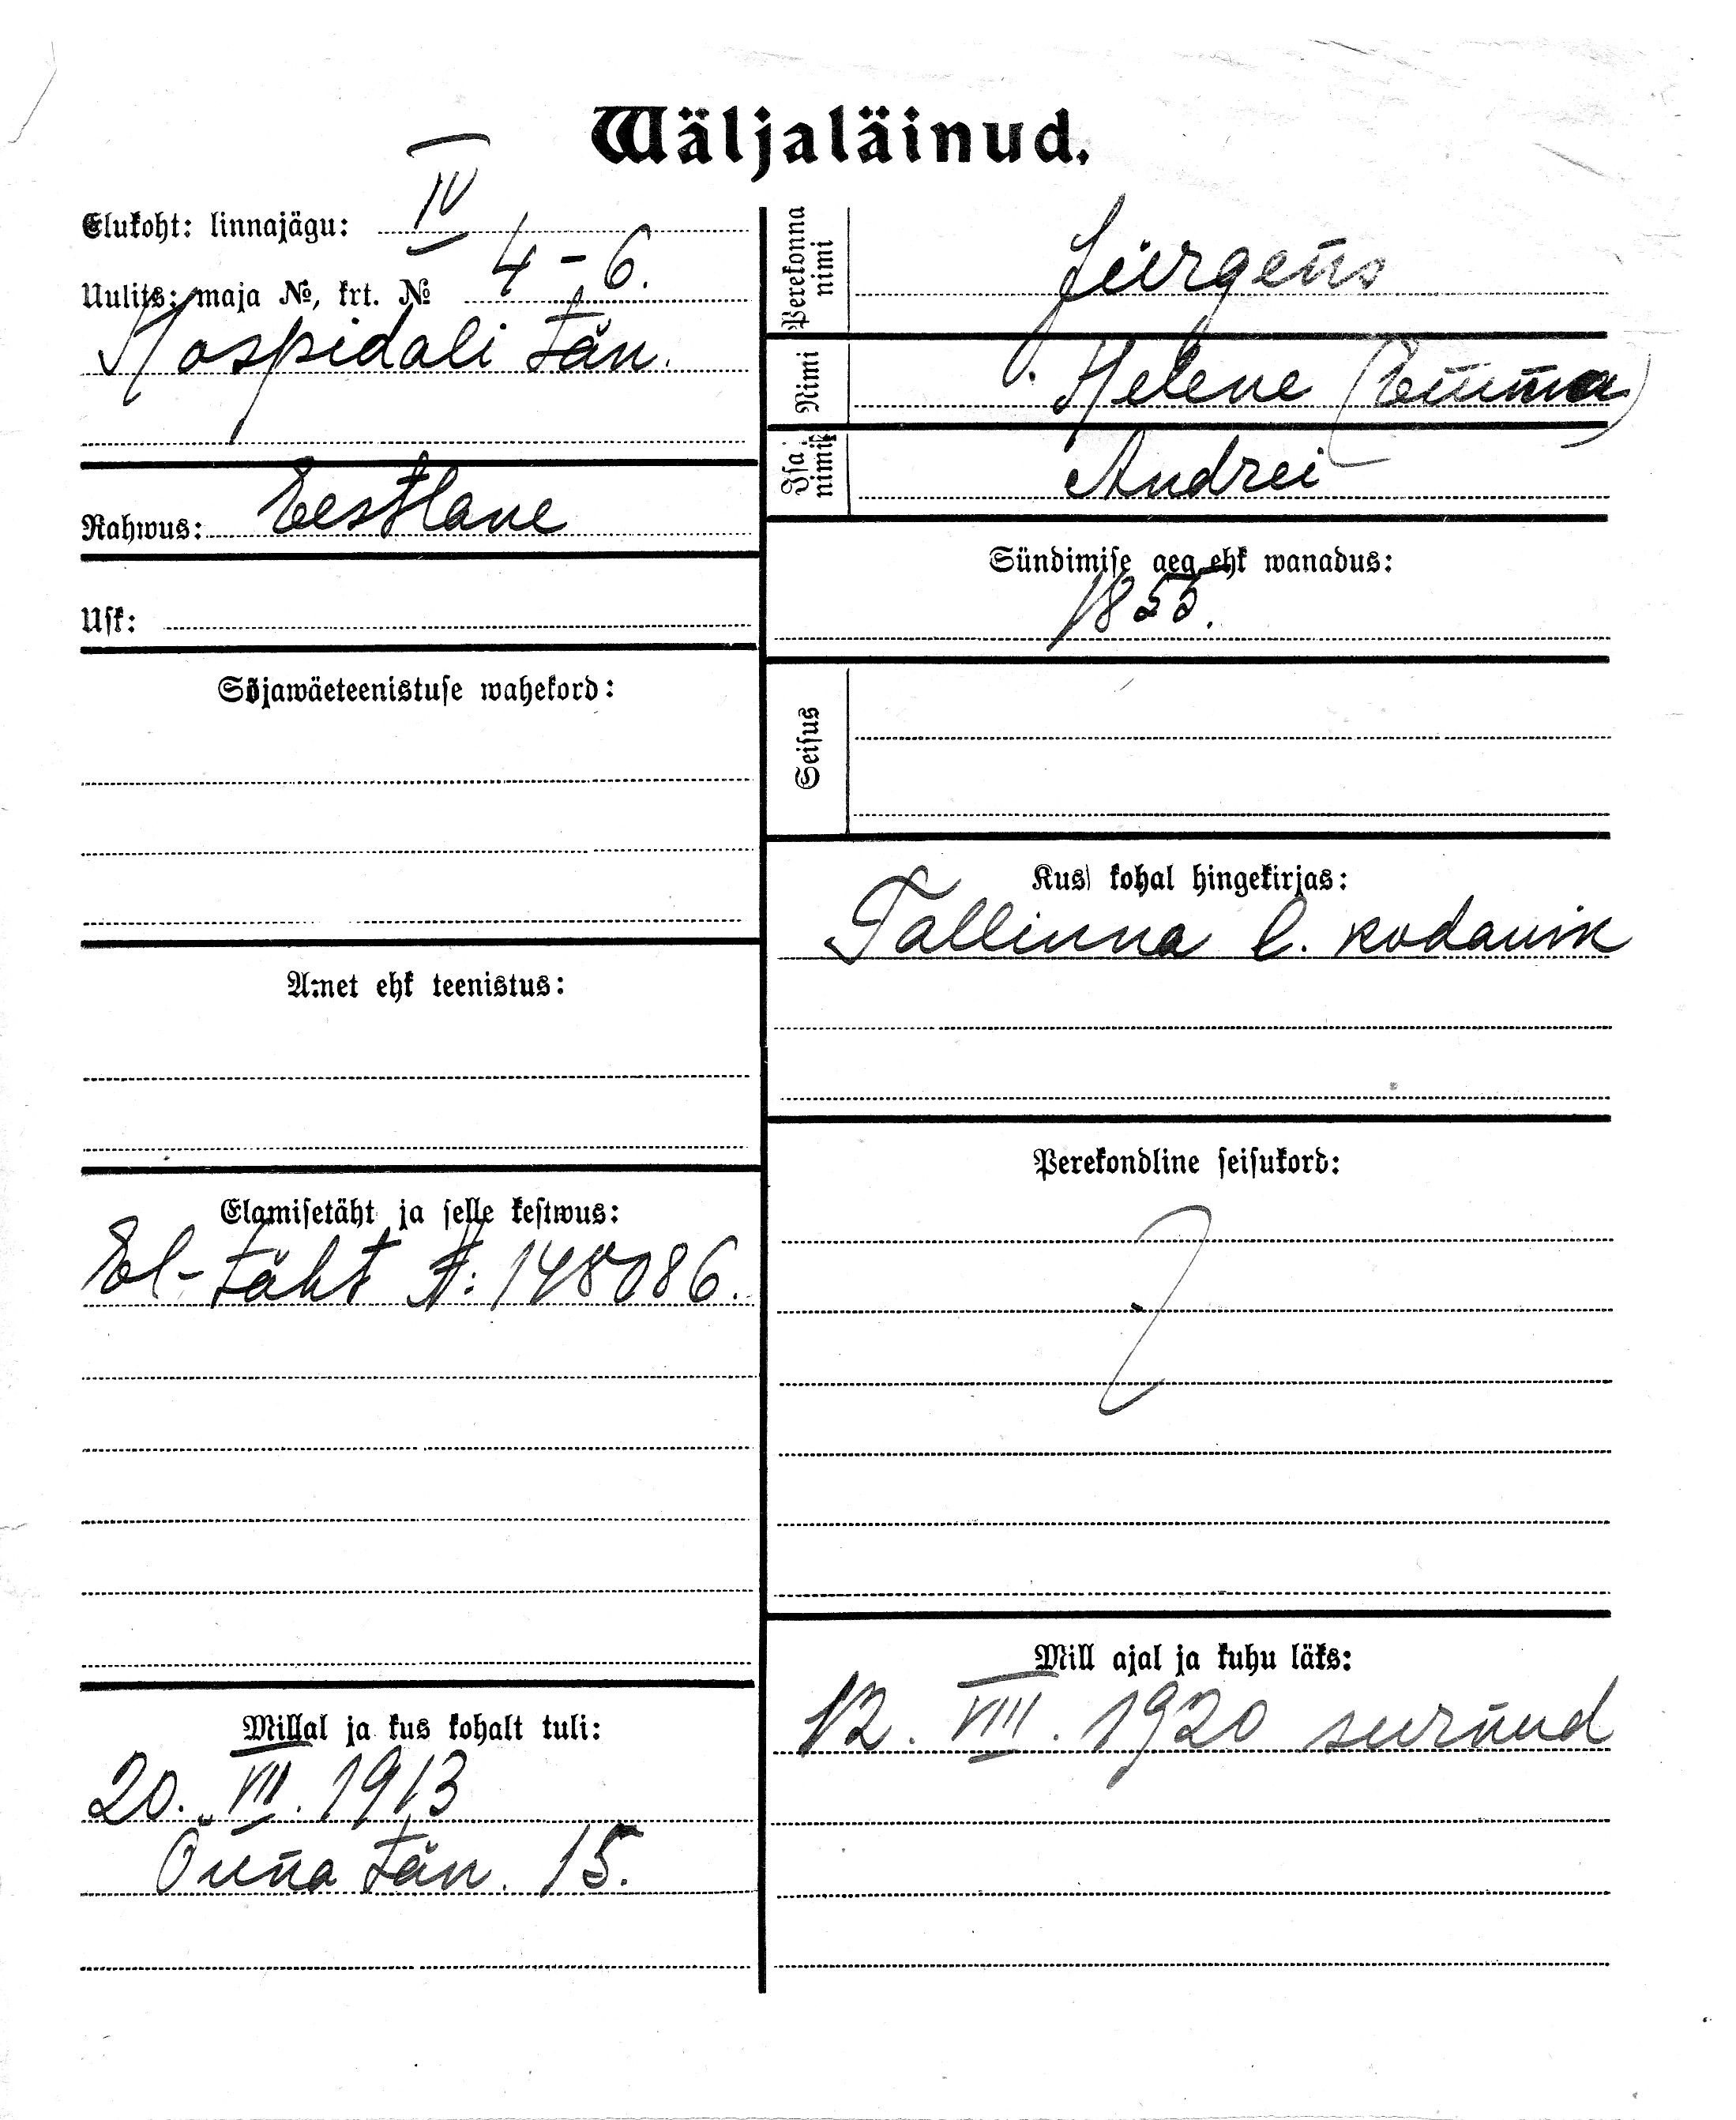 Wäljaläinud.
Elukoht: linnajägu: IV
Uulits: maja №, krt. № 4-6.
Hospidali tän.
Rahwus: Eestlane
Usk:
Sõjawäeteenistuse wahekord:
Amet ehk teenistus:
Elamisetäht ja selle kestwus:
El-täht №: 148086.
Millal ja kus kohalt tuli:
20. VII. 1913
Õuna tän. 15.
Perekonna nimi Jürgens
Nimi Helene (Emma)
Isa nimi Andrei
Sündimise aeg ehk wanadus:
1855.
Seisus
Kus kohal hingekirjas:
Tallinna l. kodanik
Perekondline seisukord:
Mill ajal ja kuhu läks:
12. VIII. 1920 surnud